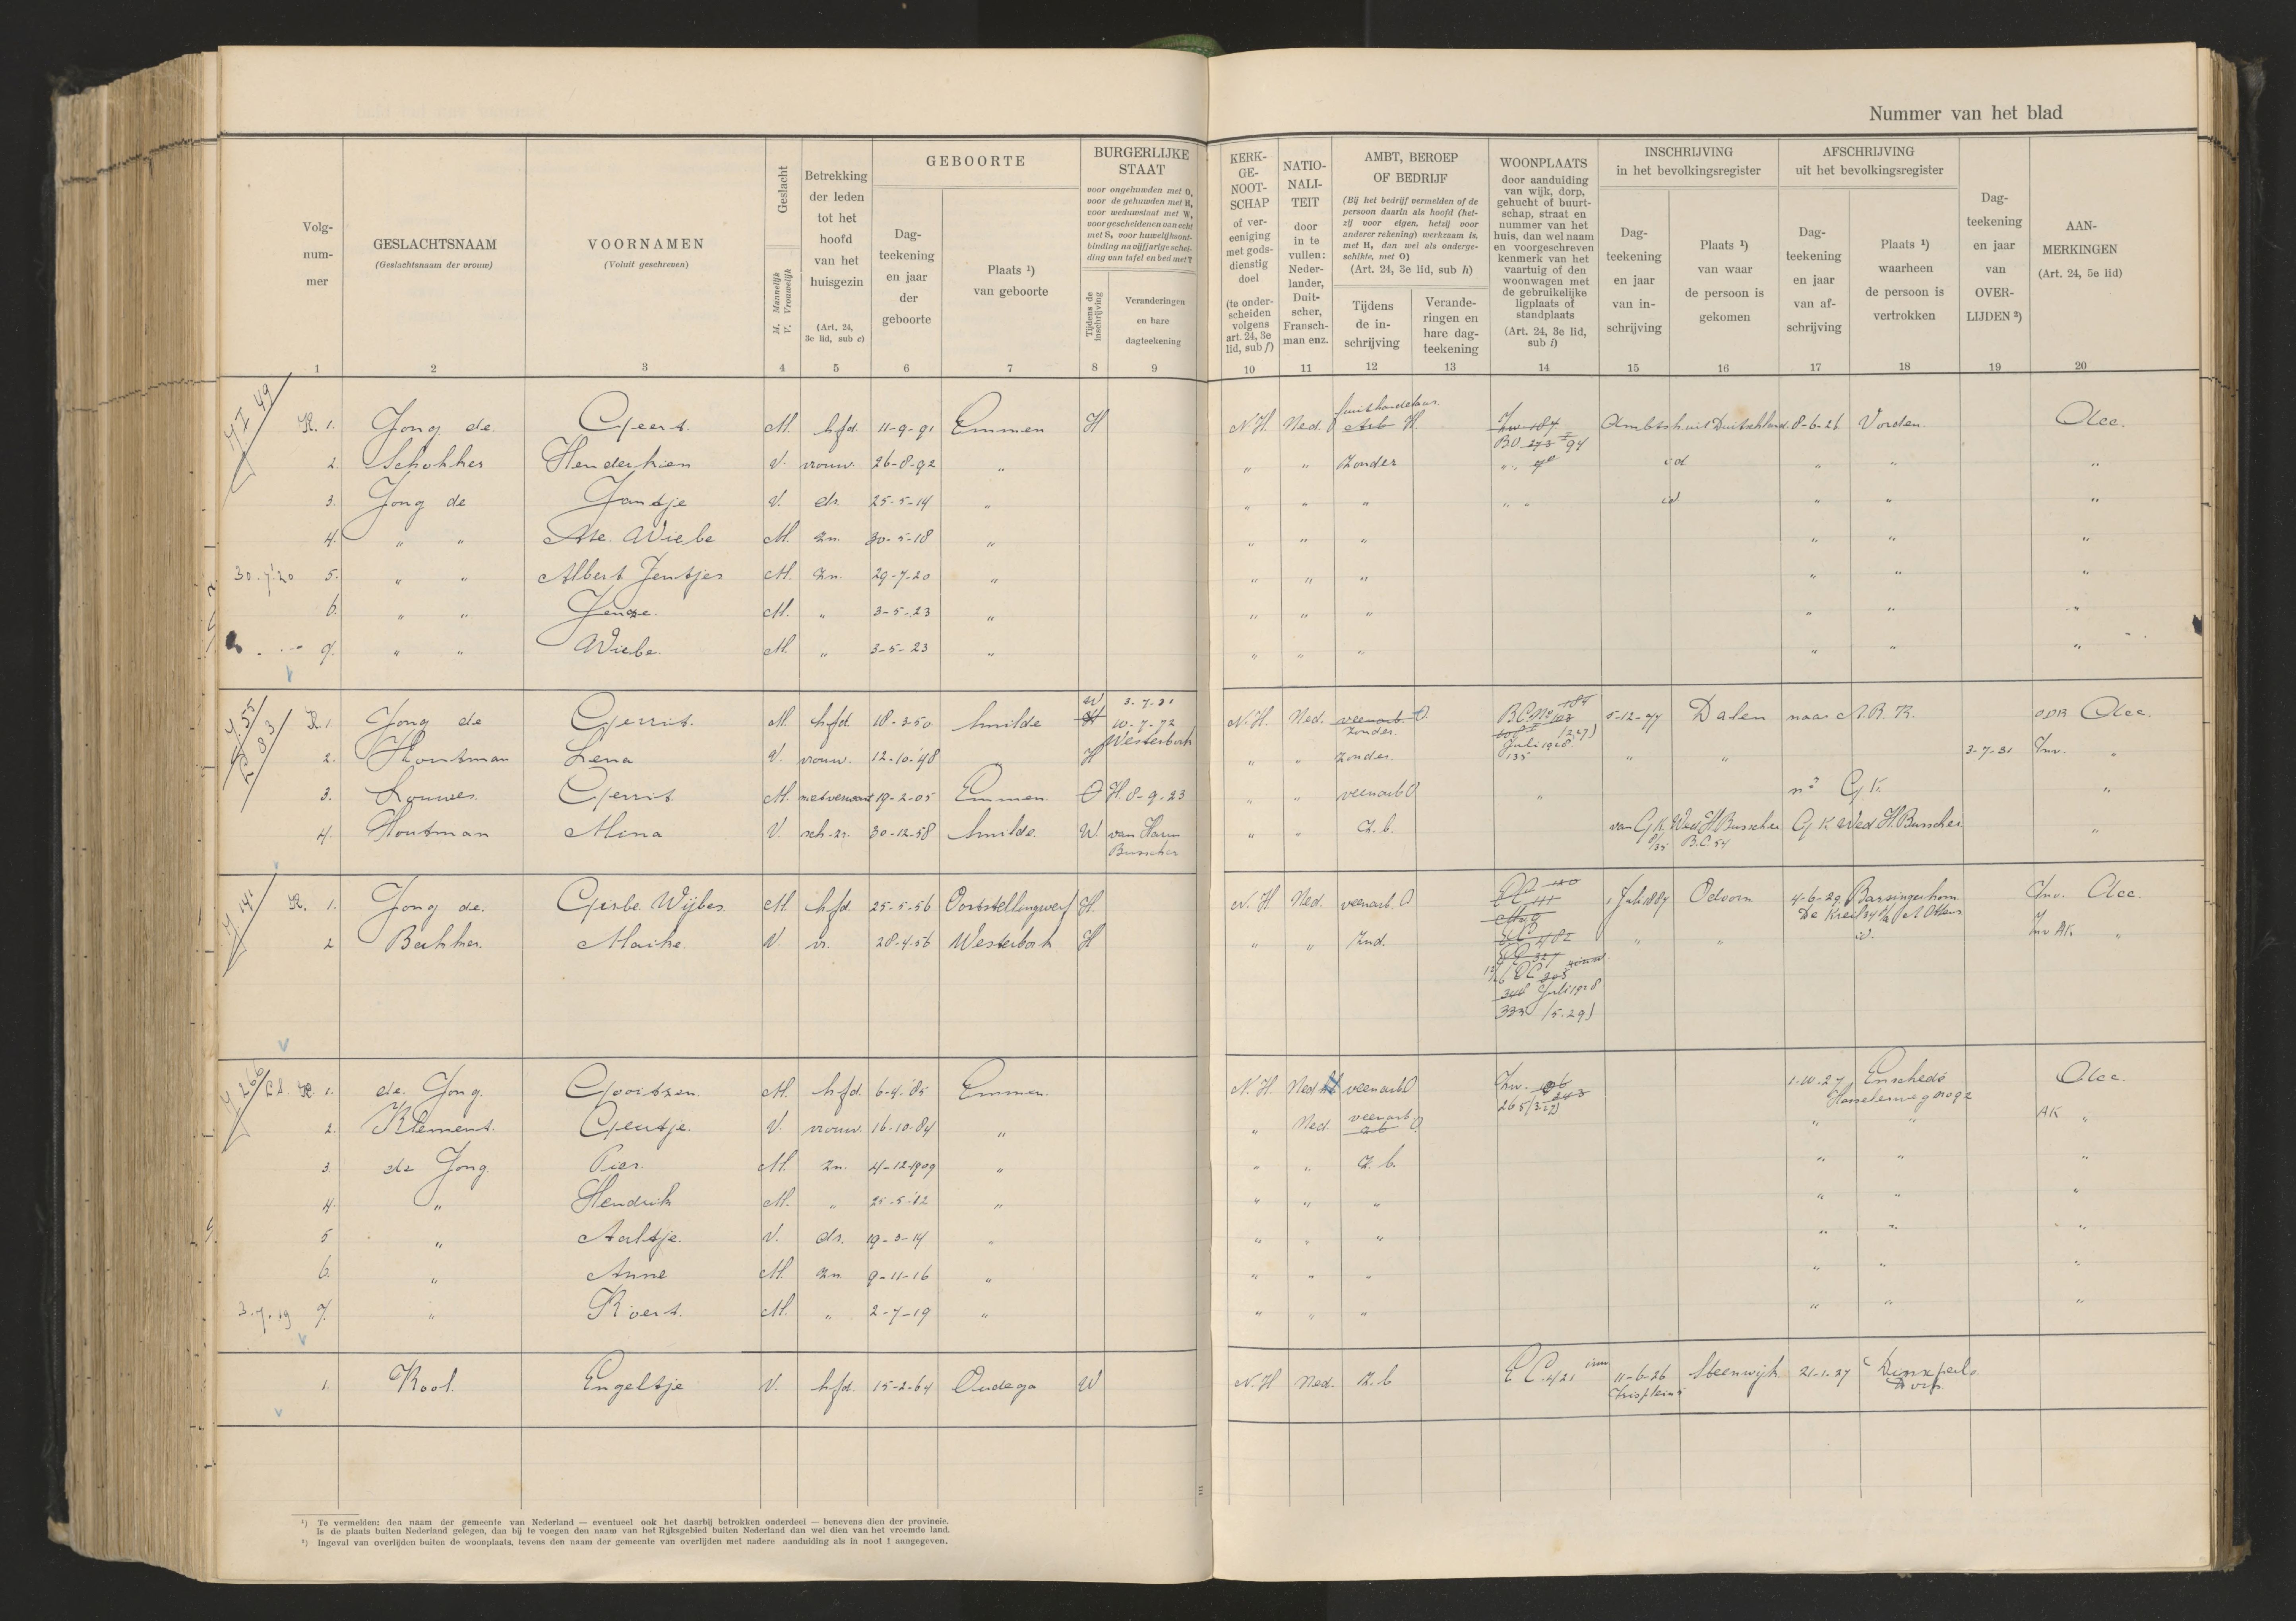 Nummer van het blad
Volg-
num-
mer
GESLACHTSNAAM
(Geslachtsnaam der vrouw)
VOORNAMEN
(Voluit geschreven)
Geslacht
M. Mannelijk
V. Vrouwelijk
Betrekking
der leden
tot het
hoofd
van het
huisgezin
(Art. 24,
3e lid, sub c)
GEBOORTE
Dag-
teekening
en jaar
der
geboorte
Plaats ¹)
van geboorte
BURGERLIJKE
STAAT
voor ongehuwden met O,
voor de gehuwden met H,
voor weduwstaat met W,
voor gescheidenen van echt
met S, voor huwelijksont-
binding na vijfjarige schei-
ding van tafel en bed met T
Tijdens de
inschrijving
Veranderingen
en hare
dagteekening
KERK-
GE-
NOOT-
SCHAP
of ver-
eeniging
met gods-
dienstig
doel
(te onder-
scheiden
volgens
art. 24, 3e
lid, sub f)
NATIO-
NALI-
TEIT
door
in te
vullen:
Neder-
lander,
Duit-
scher,
Fransch-
man enz.
AMBT, BEROEP
OF BEDRIJF
(Bij het bedrijf vermelden of de
persoon daarin als hoofd (het-
zij voor eigen, hetzij voor
anderer rekening) werkzaam is,
met H, dan wel als onderge-
schikte, met O)
(Art. 24, 3e lid, sub h)
Tijdens
de in-
schrijving
Verande-
ringen en
hare dag-
teekening
WOONPLAATS
door aanduiding
van wijk, dorp,
gehucht of buurt-
schap, straat en
nummer van het
huis, dan wel naam
en voorgeschreven
kenmerk van het
vaartuig of den
woonwagen met
de gebruikelijke
ligplaats of
standplaats
(Art. 24, 3e lid,
sub i)
INSCHRIJVING
in het bevolkingsregister
Dag-
teekening
en jaar
van in-
schrijving
Plaats ¹)
van waar
de persoon is
gekomen
AFSCHRIJVING
uit het bevolkingsregister
Dag-
teekening
en jaar
van af-
schrijving
Plaats ¹)
waarheen
de persoon is
vertrokken
Dag-
teekening
en jaar
van
OVER-
LIJDEN ²)
AAN-
MERKINGEN
(Art. 24, 5e lid)
1 2 3 4 5 6 7 8 9 10 11 12 13 14 15 16 17 18 19 20
1. Jong de Geert M. hfd. 11-9-91 Emmen H N.H. Ned. H. 8-6-26 Vorden Acc.
2. Henderkien V. vrouw. 26-8-92 " " " Zonder id " " "
3. Jong de Jantje V. dr. 25-5-14 " " " " id " " "
4. " " Wiebe M. zn. 30-5-18 " " " " " " "
30-7-20 5. " " Albert Jentjes M. zn. 29-7-20 " " " " " " "
6. " " M. " 3-5-23 " " " " " " "
7. " " Wiebe. M. " 3-5-23 " " " " " " "
1 Jong de Gerrit. M. hfd. 18-3-50 Smilde W 3-7-31 10-7-72 Westerbork N.H. Ned. veenarb. O. zonder. Dalen naar A.R.K. Acc.
2. Houtman Lena V. vrouw. 12-10-48 " H " " Zonder. " " 3-7-31 Inv. "
3. Louwes Gerrit M. 19-2-05 Emmen. O H. 8-9-23 " " veenarb O " G.K. "
4. Houtman Mina V. 30-12-58 Smilde. W van Harm Busscher " " Z.b. van G.K. Wed H Busscher G K Wed. H. Busscher "
1. Jong de. Wijbes M. hfd. 25-5-56 Ooststellingwerf H. N.H. Ned. veenarb. O 1 Juli 1887 Odoorn 4-6-29 Barsingerhorn Inv. Acc.
2 Bakker Maike. V. vr. 28-4-56 Westerbork H " " Znd. " " id. Inv AK "
Juli 1928
333 (5-29)
1. de Jong. M. hfd. 6-4-85 Emmen. N.H. Ned veenarb O 1-10-27 Enschedé Acc.
2. Klement. Geertje. V. vrouw. 16-10-84 " " Ned. veenarb O " " AK "
3. de Jong. Pier. M. zn. 4-12-1909 " " " Z.b. " " "
4. " Hendrik M. " 25-5-12 " " " " " " "
5 " Aaltje. V. dr. 19-3-14 " " " " " " "
6. " Anne M. zn. 9-11-16 " " " " " " "
3-7-19 7. " Roert. M. " 2-7-19 " " " " " " "
1. Kool Engeltje V. hfd. 15-2-64 Oudega W N.H Ned. Z.b E C. 421 11-6-26 Steenwijk 21-1-27 Dinxperlo
¹) Te vermelden: den naam der gemeente van Nederland — eventueel ook het daarbij betrokken onderdeel — benevens dien der provincie.
Is de plaats buiten Nederland gelegen, dan bij te voegen den naam van het Rijksgebied buiten Nederland dan wel dien van het vreemde land.
²) Ingeval van overlijden buiten de woonplaats, tevens den naam der gemeente van overlijden met nadere aanduiding als in noot 1 aangegeven.